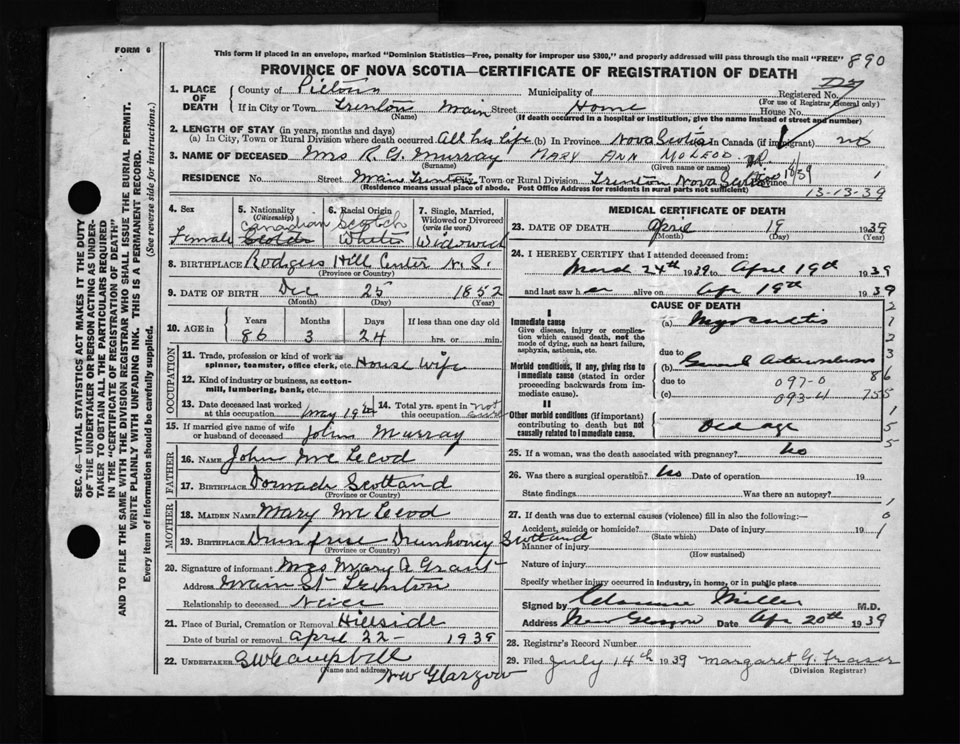 FORM 6
This form if placed in an envelope, marked "Dominion Statistics—Free, penalty for improper use $300," and properly addressed will pass through the mail "FREE"
890
PROVINCE OF NOVA SCOTIA—CERTIFICATE OF REGISTRATION OF DEATH
SEC. 46—VITAL STATISTICS ACT MAKES IT THE DUTY
OF THE UNDERTAKER OR PERSON ACTING AS UNDER-
TAKER TO OBTAIN ALL THE PARTICULARS REQUIRED
IN THE "CERTIFICATE OF REGISTRATION OF DEATH"
AND TO FILE THE SAME WITH THE DIVISION REGISTRAR WHO SHALL ISSUE THE BURIAL PERMIT.
WRITE PLAINLY WITH UNFADING INK. THIS IS A PERMANENT RECORD.
Every item of information should be carefully supplied. (See reverse side for instructions.)
1. PLACE OF DEATH
County of Pictou Municipality of Registered No.
(For use of Registrar General only)
If in City or Town Trenton Main Street Home House No.
(Name) (If death occurred in a hospital or institution, give the name instead of street and number)
2. LENGTH OF STAY (in years, months and days)
(a) In City, Town or Rural Division where death occurred All his life (b) In Province Nova Scotia In Canada (if immigrant)
3. NAME OF DECEASED Mrs R. G. Murray MARY ANN McLEOD
(Surname) (Given name or names)
RESIDENCE No. Street Main Trenton Town or Rural Division Trenton Nova Scotia Province 1
(Residence means usual place of abode. Post Office Address for residents in rural parts not sufficient)
13-13-39
4. Sex
Female
5. Nationality
(Citizenship)
Canadian
6. Racial Origin
Scotch
White
7. Single, Married,
Widowed or Divorced
(write the word)
Widowed
8. BIRTHPLACE Rodgers Hill Center N.S.
(Province or Country)
9. DATE OF BIRTH Dec 25 1852
(Month) (Day) (Year)
10. AGE in Years Months Days If less than one day old
86 3 24 hrs. or min.
OCCUPATION
11. Trade, profession or kind of work as
spinner, teamster, office clerk, etc. House Wife
12. Kind of industry or business, as cotton-
mill, lumbering, bank, etc.
13. Date deceased last worked
at this occupation May 19th
14. Total yrs. spent in
this occupation
15. If married give name of wife
or husband of deceased John Murray
FATHER
16. NAME John McLeod
17. BIRTHPLACE Scotland
(Province or Country)
MOTHER
18. MAIDEN NAME Mary McLeod
19. BIRTHPLACE Scotland
(Province or Country)
20. Signature of informant Mrs Mary A Grant
Address Main St Trenton
Relationship to deceased Neice
21. Place of Burial, Cremation or Removal Hillside
Date of burial or removal April 22 - 1939
22. UNDERTAKER G W Campbell
(Name and address)
New Glasgow
MEDICAL CERTIFICATE OF DEATH
23. DATE OF DEATH April 19 1939
(Month) (Day) (Year)
24. I HEREBY CERTIFY that I attended deceased from:
March 24th 1939 to April 19th 1939
and last saw her alive on Apr 19th 1939
CAUSE OF DEATH
I
Immediate cause
Give disease, injury or complica-
tion which caused death, not the
mode of dying, such as heart failure,
asphyxia, asthenia, etc.
(a) Myocarditis
due to
Morbid conditions, if any, giving rise to
immediate cause (stated in order
proceeding backwards from im-
mediate cause).
(b) General
due to 097-0
(c) 093-4
II
Other morbid conditions (if important)
contributing to death but not
causally related to immediate cause.
Old age
25. If a woman, was the death associated with pregnancy? No
26. Was there a surgical operation? No Date of operation 19
State findings Was there an autopsy?
27. If death was due to external causes (violence) fill in also the following:—
Accident, suicide or homicide? Date of injury 19
(State which)
Manner of injury
(How sustained)
Nature of injury
Specify whether injury occurred in industry, in home, or in public place
Signed by Clarence Miller M.D.
Address New Glasgow Date Apr 20th 1939
28. Registrar's Record Number
29. Filed July 14th 1939 Margaret G. Fraser
(Division Registrar)